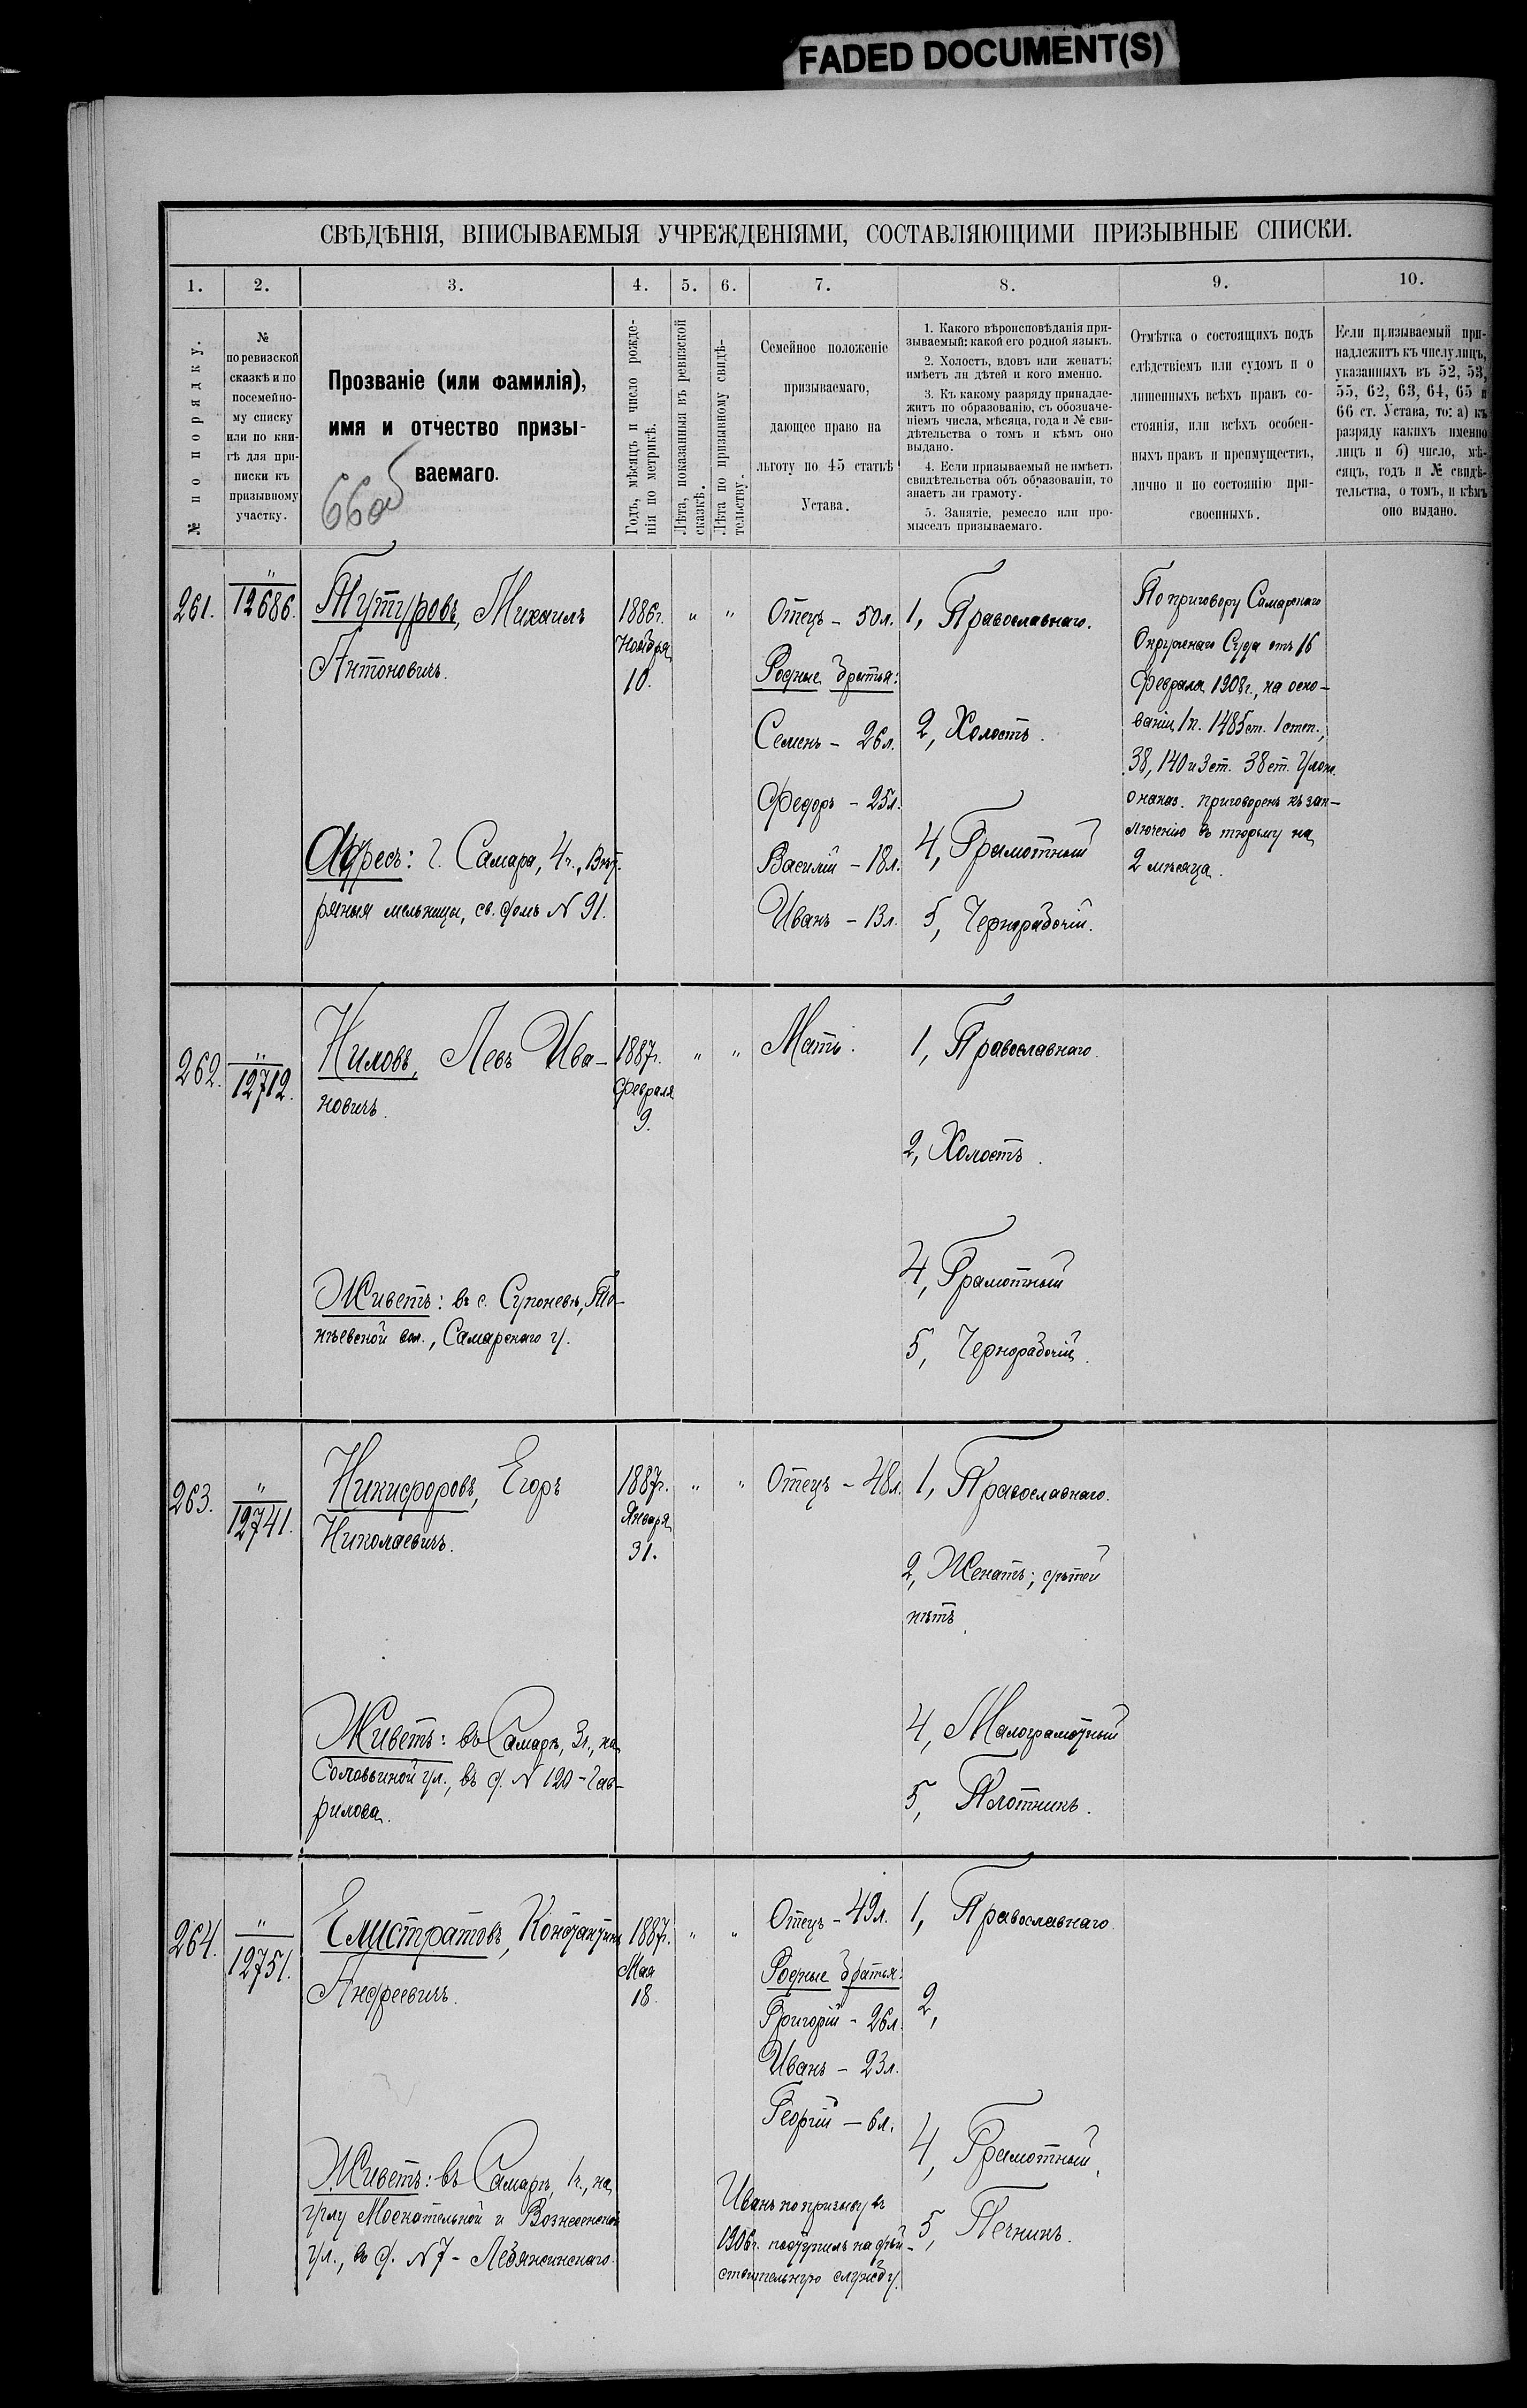 FADED DOCUMENT(S)
СВѢДѢНІЯ, ВПИСЫВАЕМЫЯ УЧРЕЖДЕНІЯМИ, СОСТАВЛЯЮЩИМИ ПРИЗЫВНЫЕ СПИСКИ.
1.
2.
3.
4.
5.
6.
7.
8.
9.
10.
№ по порядку.
№
по ревизской
сказкѣ и по
посемейно-
му списку
или по кни-
гѣ для при-
писки къ
призывному
участку.
Прозваніе (или фамилія),
имя и отчество призы-
ваемаго.
Годъ, мѣсяцъ и число рожде-
нія по метрикѣ.
Лѣта, показанныя въ ревизской
сказкѣ.
Лѣта по призывному свидѣ-
тельству.
Семейное положеніе
призываемаго,
дающее право на
льготу по 45 статьѣ
Устава.
1. Какого вѣроисповѣданія при-
зываемый; какой его родной языкъ.
2. Холостъ, вдовъ или женатъ:
имѣетъ ли дѣтей и кого именно.
3. Къ какому разряду принадле-
житъ по образованію, съ обозначе-
ніемъ числа, мѣсяца, года и № сви-
дѣтельства о томъ и кѣмъ оно
выдано.
4. Если призываемый не имѣетъ
свидѣтельства объ образованіи, то
знаетъ ли грамоту.
5. Занятіе, ремесло или про-
мыселъ призываемаго.
Отмѣтка о состоящихъ подъ
слѣдствіемъ или судомъ и о
лишенныхъ всѣхъ правъ со-
стоянія, или всѣхъ особен-
ныхъ правъ и преимуществъ,
лично и по состоянію при-
своенныхъ.
Если призываемый при-
надлежитъ къ числу лицъ,
указанныхъ въ 52, 53,
55, 62, 63, 64, 65 и
66 ст. Устава, то: а) къ
разряду какихъ именно
лицъ и б) число, мѣ-
сяцъ, годъ и № свидѣ-
тельства, о томъ, и кѣмъ
оно выдано.
261.
"
12686.
Тутуровъ, Михаилъ
Антоновичъ.
Адресъ: г. Самара, 4 ч., Вѣт-
ряныя мельницы, св. домъ N 91.
1886 г.
Ноября
10.
"
"
Отецъ - 50 л.
Родные братья:
Семенъ - 26 л.
Федоръ - 25 л.
Василій - 18 л.
Иванъ - 13 л.
1, Православнаго.
2, Холостъ.
4, Грамотный
5, Чернорабочій.
По приговору Самарскаго
Окружнаго Суда отъ 16
Февраля 1908 г., на осно-
ваніи 1 п. 1485 ст. 1 степ.,
38, 140 и 3 ст. 38 ст. Улож.
о наказ. приговоренъ къ зак-
люченію въ тюрьму на
2 мѣсяца.
262.
"
12712.
Ниловъ, Левъ Ива-
новичъ.
Живетъ: въ с. Супоневѣ,
вол., Самарскаго у.
1887 г.
Февраля
9.
"
"
Мать.
1, Православнаго.
2, Холостъ.
4, Грамотный
5, Чернорабочій.
263.
"
12741.
Никифоровъ, Егоръ
Николаевичъ.
Живетъ: въ Самарѣ, 3 ч., на
Соловьиной ул., въ д. N 120 - Гав-
рилова.
1887 г.
Января
31.
"
"
Отецъ - 48 л.
1, Православнаго.
2, Женатъ; дѣтей
нѣтъ.
4, Малограмотный
5, Плотникъ.
264.
"
12751.
Елистратовъ, Константинъ
Андреевичъ.
Живетъ: въ Самарѣ, 1 ч., на
углу Москательной и Вознесенской
ул., въ д. N 7 -
1887 г.
Мая
18.
"
"
Отецъ - 49 л.
Родные братья:
Григорій - 26 л.
Иванъ - 23 л.
Георгій - 6 л.
Иванъ по призыву въ
1906 г. поступилъ на дѣй-
ствительную службу.
1, Православнаго.
2,
4, Грамотный.
5, Печникъ.